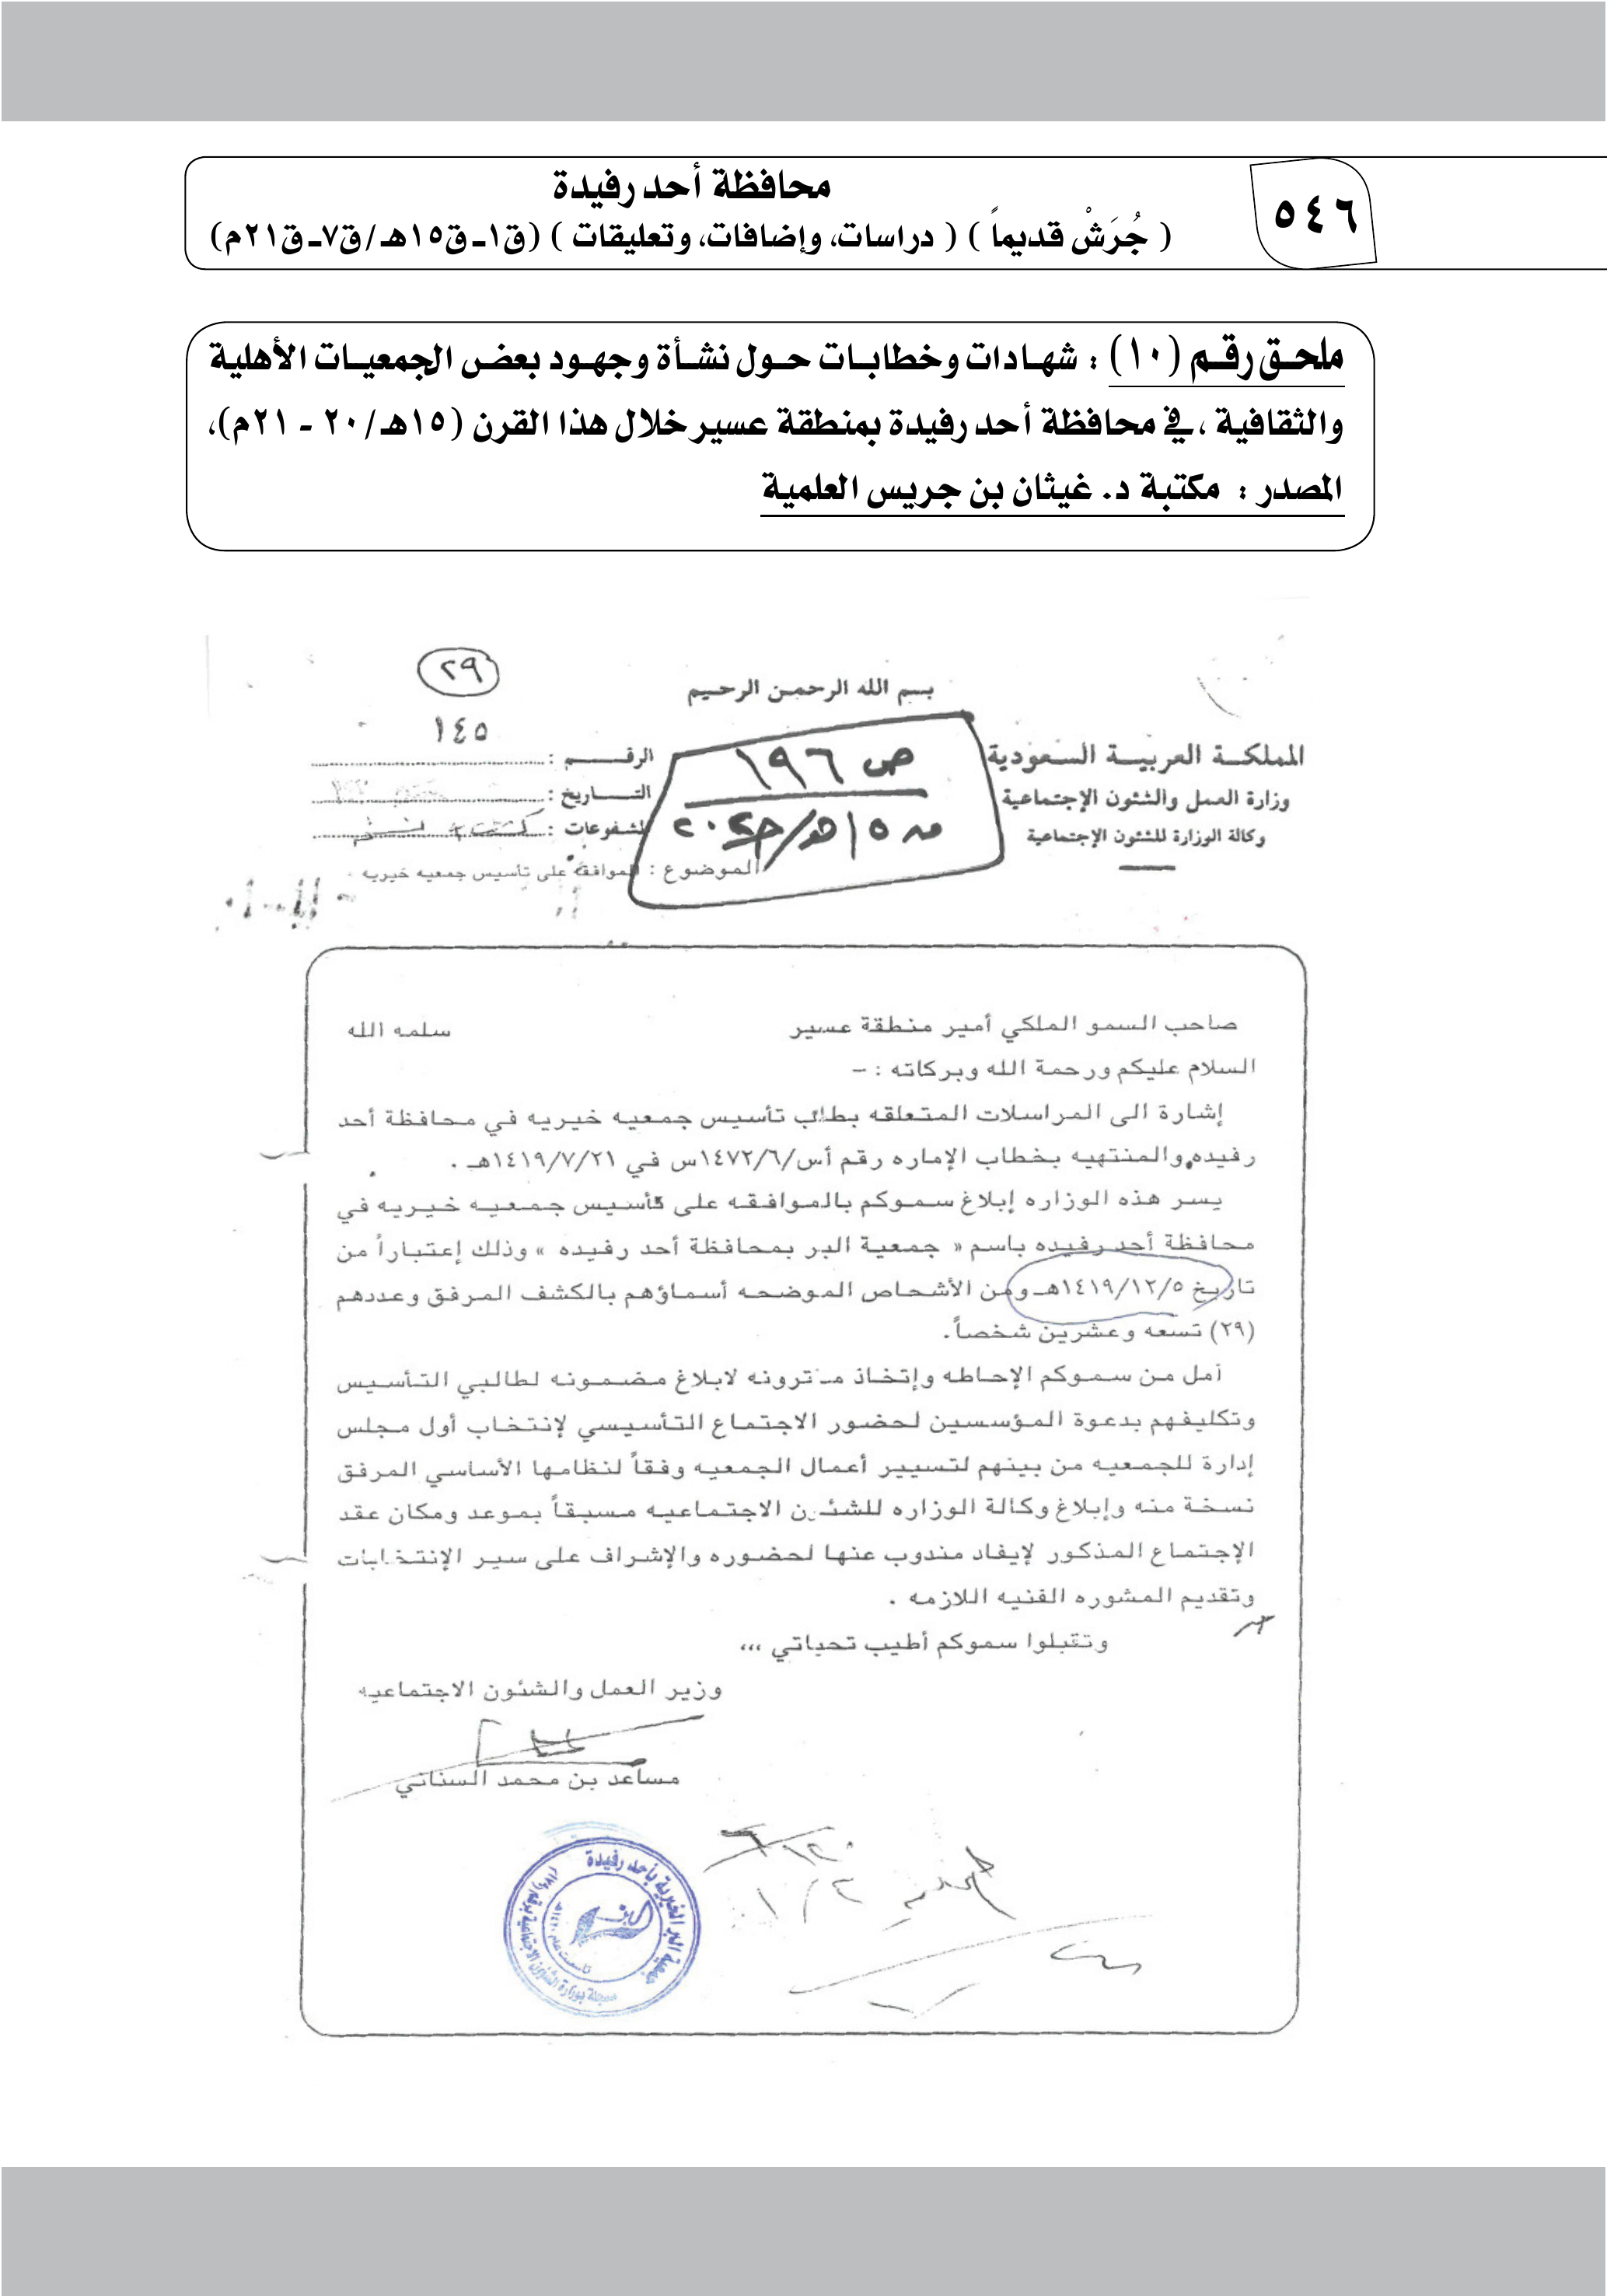 ٥٤٦
محافظة أحد رفيدة
( جُرَشْ قديماً ) ( دراسات، وإضافات، وتعليقات ) (ق١ـ ق١٥هـ/ق٧ـ ق٢١م)
ملحق رقم (١٠) : شهادات وخطابات حول نشأة وجهود بعض الجمعيات الأهلية
والثقافية ، في محافظة أحد رفيدة بمنطقة عسير خلال هذا القرن (١٥هـ/٢٠ - ٢١م)،
المصدر : مكتبة د. غيثان بن جريس العلمية
٢٩
بسم الله الرحمن الرحيم
المملكة العربية السعودية
وزارة العمل والشئون الإجتماعية
وكالة الوزارة للشئون الإجتماعية
ص ١٩٦
١٤٥
الرقم :
التاريخ :
المشفوعات :
الموضوع : الموافقة على تأسيس جمعيه خيريه
صاحب السمو الملكي أمير منطقة عسير سلمه الله
السلام عليكم ورحمة الله وبركاته : –
إشارة الى المراسلات المتعلقه بطلب تأسيس جمعيه خيريه في محافظة أحد
رفيده والمنتهيه بخطاب الإماره رقم أس/١٤٧٢/٦س في ١٤١٩/٧/٢١هـ .
يسر هذه الوزاره إبلاغ سموكم بالموافقه على تأسيس جمعيه خيريه في
محافظة أحد رفيده باسم « جمعية البر بمحافظة أحد رفيده » وذلك إعتباراً من
تاريخ ١٤١٩/١٢/٥هـ ومن الأشحاص الموضحه أسماؤهم بالكشف المرفق وعددهم
(٢٩) تسعه وعشرين شخصاً.
آمل من سموكم الإحاطه وإتخاذ ماترونه لابلاغ مضمونه لطالبي التأسيس
وتكليفهم بدعوة المؤسسين لحضور الاجتماع التأسيسي لإنتخاب أول مجلس
إدارة للجمعيه من بينهم لتسيير أعمال الجمعيه وفقاً لنظامها الأساسي المرفق
نسخة منه وإبلاغ وكالة الوزاره للشئون الاجتماعيه مسبقاً بموعد ومكان عقد
الإجتماع المذكور لإيفاد مندوب عنها لحضوره والإشراف على سير الإنتخابات
وتقديم المشوره الفنيه اللازمه .
وتقبلوا سموكم أطيب تحياتي ،،،
وزير العمل والشئون الاجتماعيه
مساعد بن محمد السناني
جمعية البر الخيرية بأحد رفيدة
مسجلة بوزارة الشئون الاجتماعية